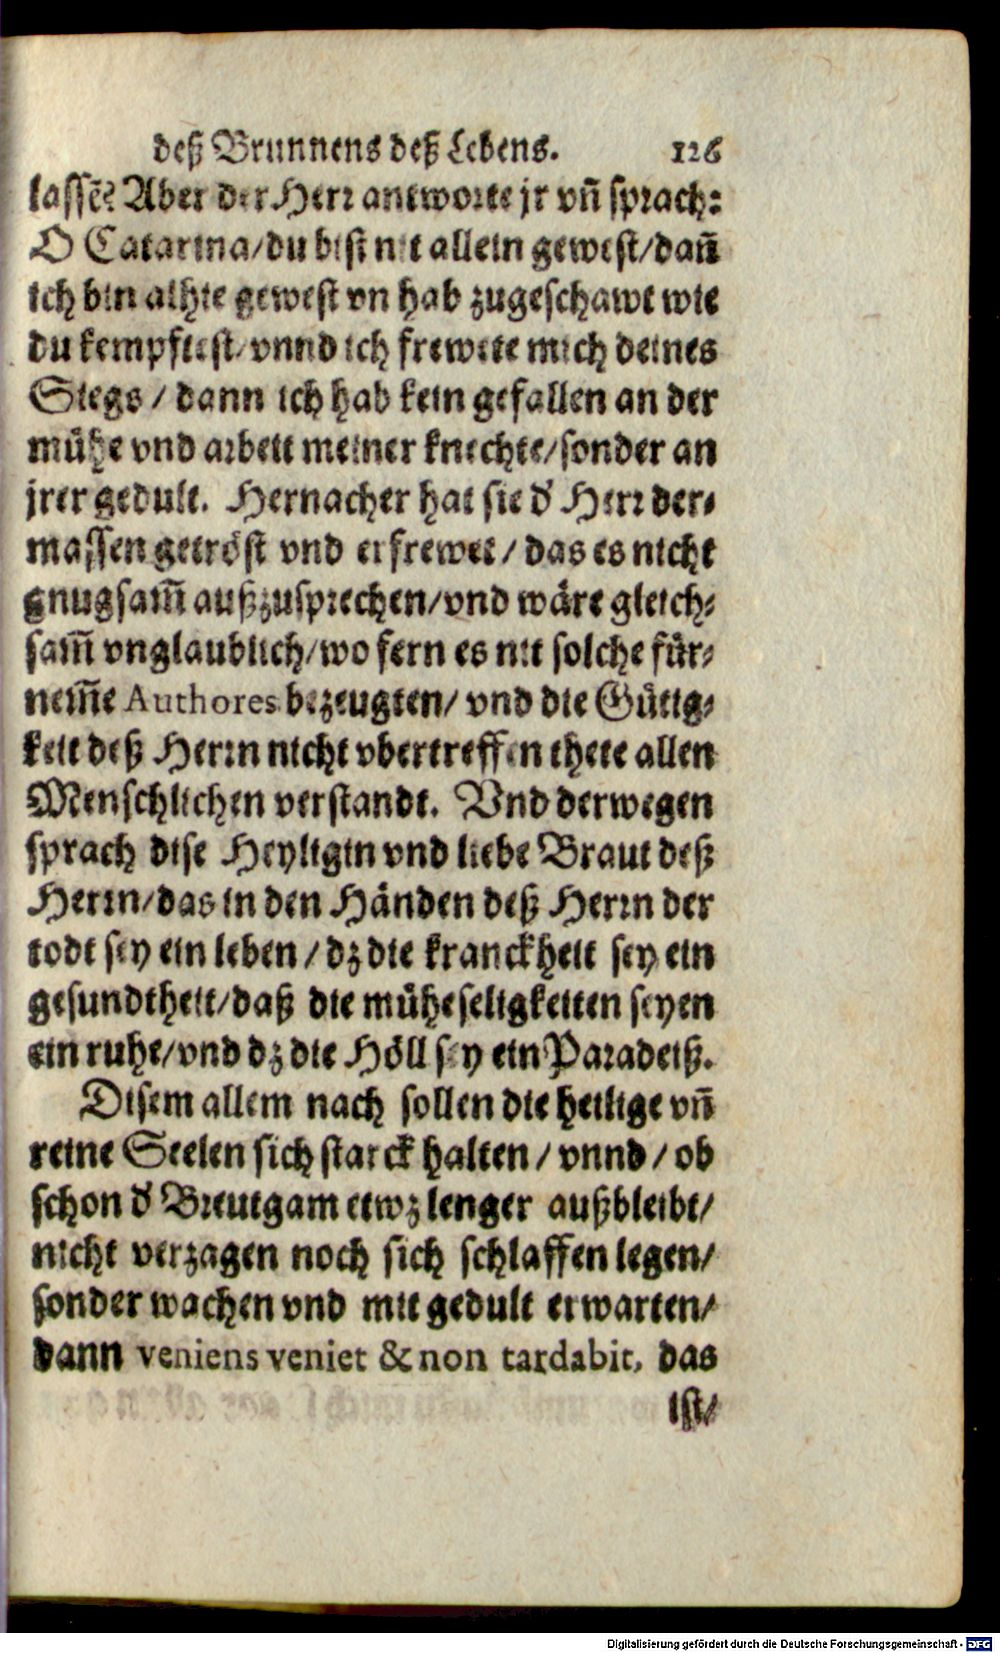 deß Brunnens deß Lebens. 126
lassẽ? Aber der Herr antworte jr vñ sprach:
O Catarina/du bist nit allein gewest/dañ
ich bin alhie gewest vn hab zugeschawt wie
du kempftest/vnnd ich frewete mich deines
Siegs / dann ich hab kein gefallen an der
mühe vnd arbeit meiner knechte/sonder an
jrer gedult. Hernacher hat sie d' Herr der-
massen getröst vnd erfrewet / das es nicht
gnugsam̃ außzusprechen/vnd wäre gleich-
sam̃ vnglaublich/wo fern es nit solche für-
nem̃e Authores bezeugten/ vnd die Gütig-
keit deß Herrn nicht vbertreffen thete allen
Menschlichen verstandt. Vnd derwegen
sprach dise Heyligin vnd liebe Braut deß
Herrn/das in den Händen deß Herrn der
todt sey ein leben / dz die kranckheit sey ein
gesundtheit/daß die müheseligkeiten seyen
ein ruhe/vnd dz die Höll sey ein Paradeiß.
Disem allem nach sollen die heilige vñ
reine Seelen sich starck halten / vnnd / ob
schon d' Breutgam etwz lenger außbleibt/
nicht verzagen noch sich schlaffen legen/
sonder wachen vnd mit gedult erwarten/
dann veniens veniet & non tardabit, das
ist/
Digitalisierung gefördert durch die Deutsche Forschungsgemeinschaft - DFG